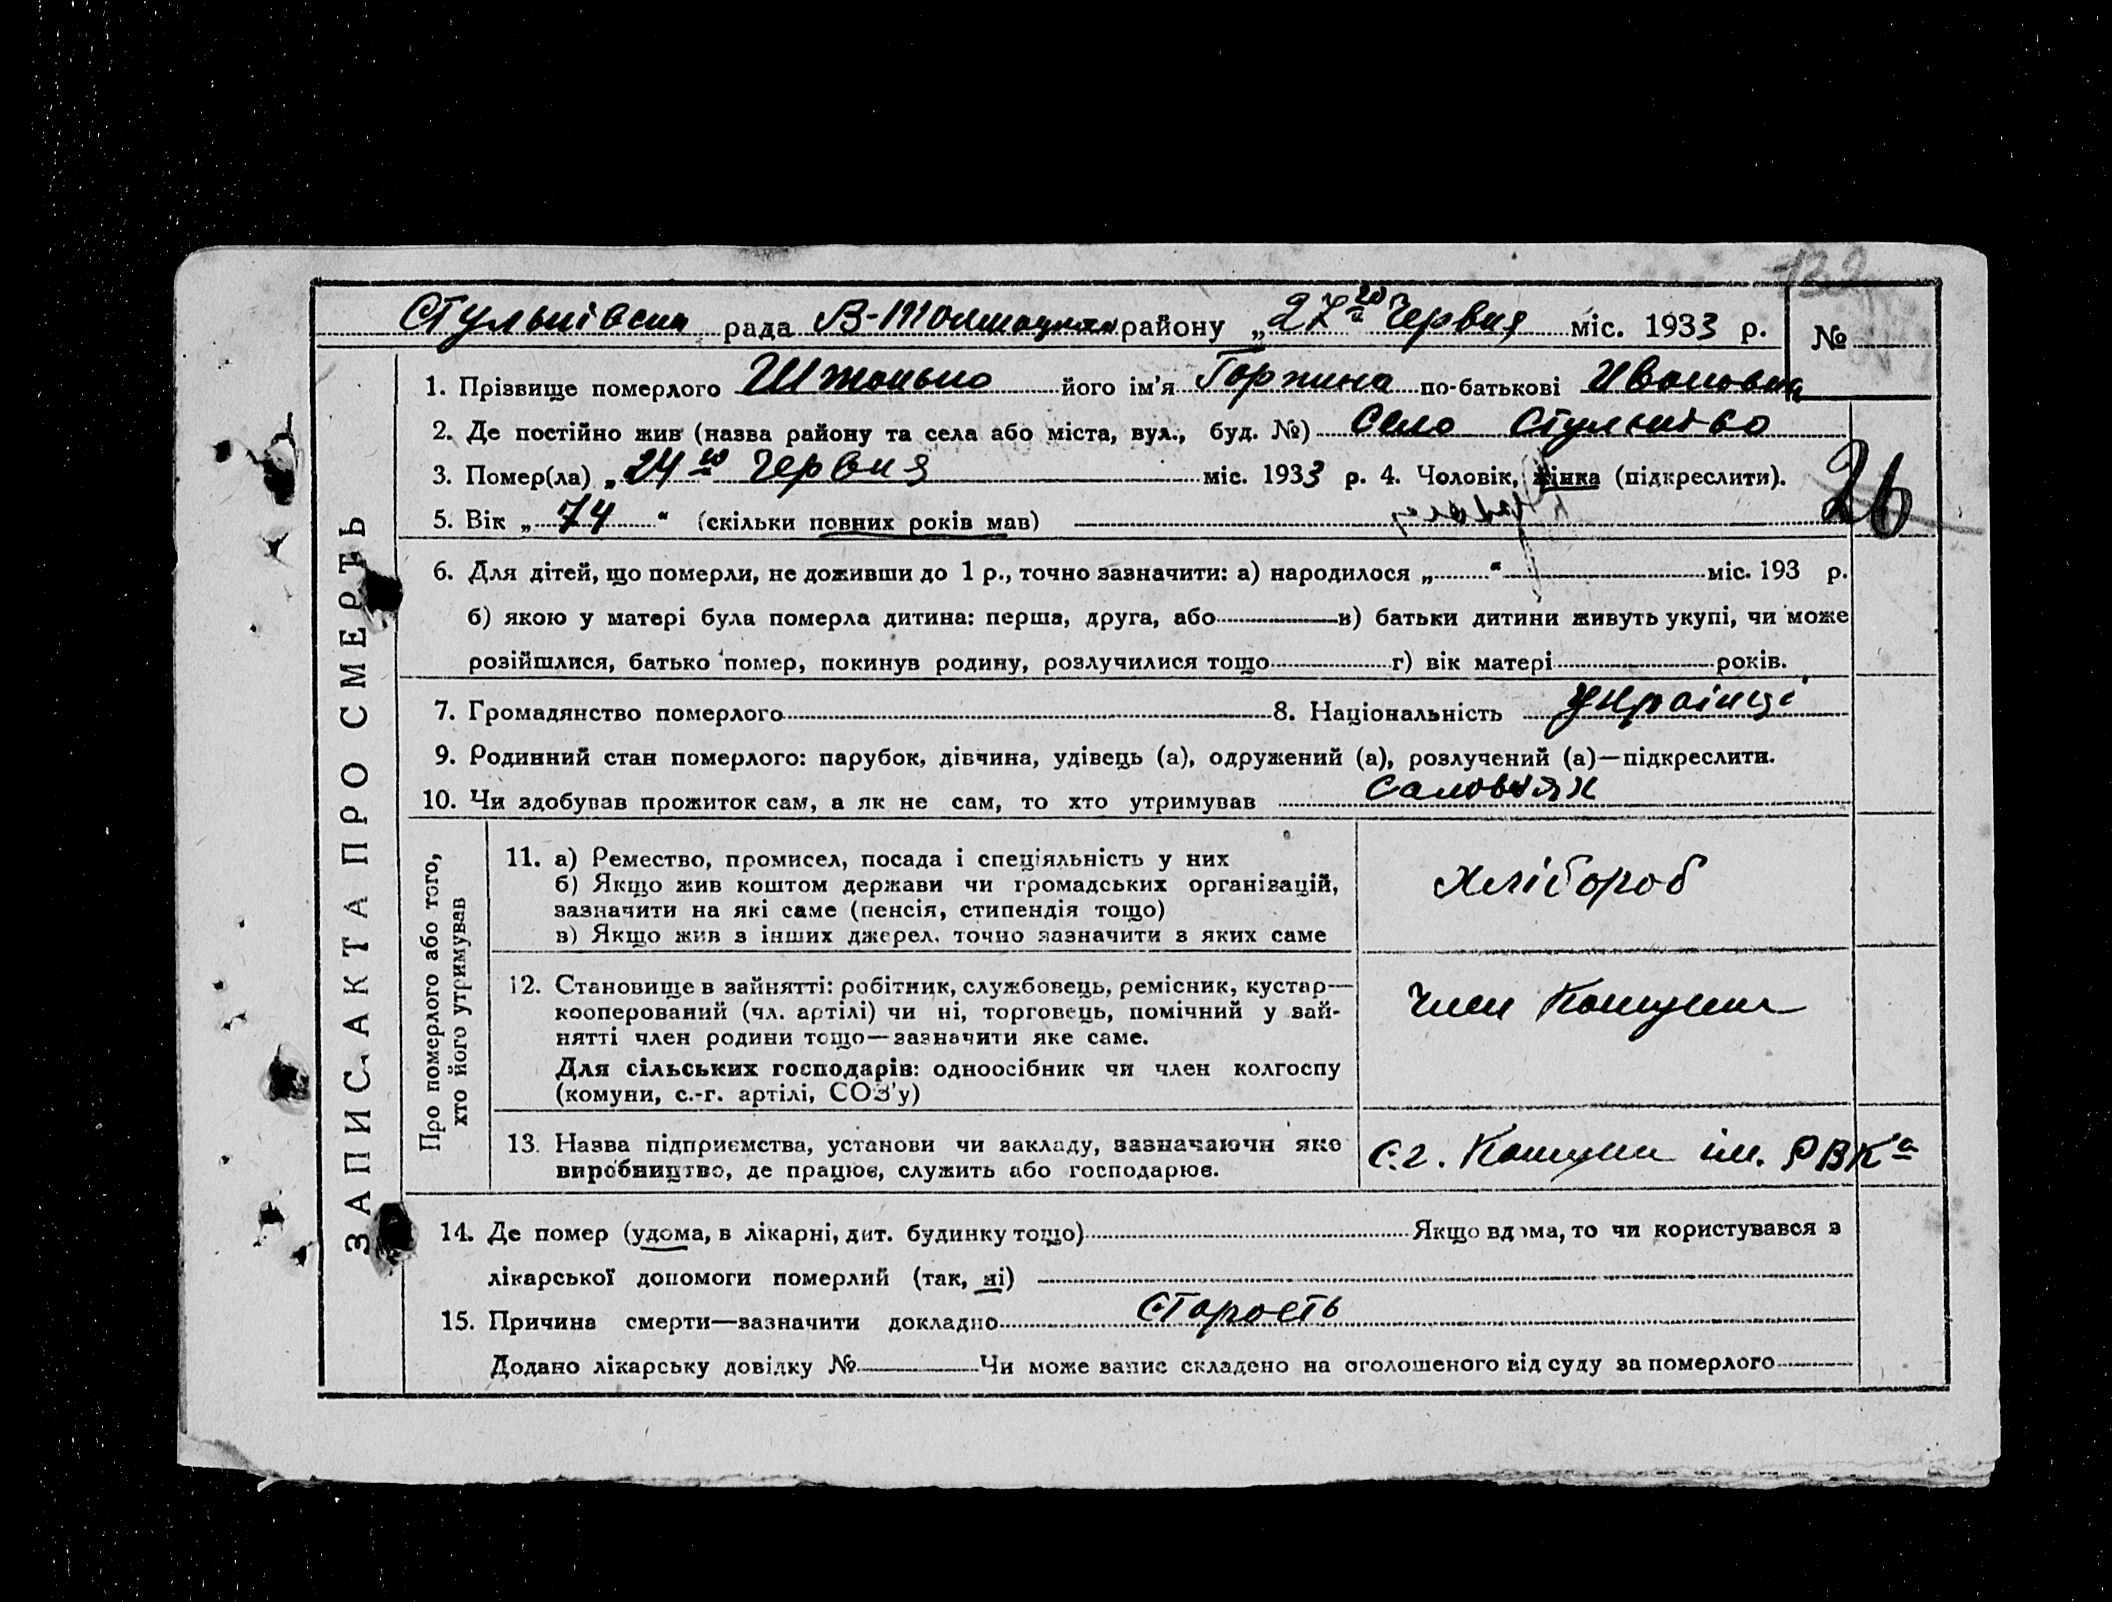 132
Стульнівська рада В-Токмацького району „27го Червня міс. 1933 р. №
1. Прізвище померлого його ім'я по-батькові Ивановна
2. Де постійно жив (назва району та села або міста, вул., буд. №) Село Стульнівo
3. Помер(ла) „24го Червня міс. 1933 р. 4. Чоловік, жінка (підкреслити).
26
5. Вік „ 74 “ (скільки повних років мав)
6. Для дітей, що померли, не доживши до 1 р., точно зазначити: а) народилося „ “ міс. 193 р.
б) якою у матері була померла дитина: перша, друга, або в) батьки дитини живуть укупі, чи може
розійшлися, батько помер, покинув родину, розлучилися тощо г) вік матері років.
7. Громадянство померлого 8. Національність Україн
9. Родинний стан померлого: парубок, дівчина, удівець (а), одружений (а), розлучений (а)—підкреслити.
10. Чи здобував прожиток сам, а як не сам, то хто утримував
ЗАПИС АКТА ПРО СМЕРТЬ
Про померлого або того,
хто його утримував
11. а) Ремество, промисел, посада і спеціяльність у них
б) Якщо жив коштом держави чи громадських організацій,
зазначити на які саме (пенсія, стипендія тощо)
в) Якщо жив з інших джерел, точно зазначити з яких саме
хлібороб
12. Становище в зайнятті: робітник, службовець, ремісник, кустар—
кооперований (чл. артілі) чи ні, торговець, помічний у зай-
нятті член родини тощо—зазначити яке саме.
Для сільських господарів: одноосібник чи член колгоспу
(комуни, с.-г. артілі, СОЗ'у)
Член Комуни
13. Назва підприємства, установи чи закладу, зазначаючи яке
виробництво, де працює, служить або господарює.
С.г. Комуни ім. РВК'а
14. Де помер (удома, в лікарні, дит. будинку тощо) Якщо вдома, то чи користувався з
лікарської допомоги померлий (так, ні)
15. Причина смерти—зазначити докладно старость
Додано лікарську довідку № Чи може запис складено на оголошеного від суду за померлого